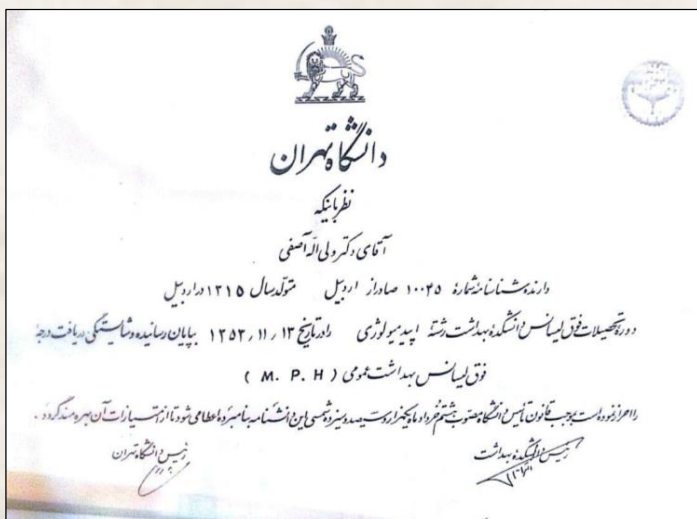 دانشگاه تهران
نظر باینکه
آقای دکتر ولی اله آصفی
دارنده شناسنامه شماره ۱۰۰۴۵ صادر از اردبیل متولد سال ۱۳۱۵ در اردبیل
دوره تحصیلات فوق لیسانس دانشکده بهداشت رشته اپیدمیولوژی را در تاریخ ۱۳ / ۱۱ / ۱۳۵۲ بپایان رسانیده و شایستگی دریافت درجه
فوق لیسانس بهداشت عمومی ( M. P. H )
را احراز نموده است بموجب قانون تأسیس دانشگاه مصوب هشتم خرداد ماه یکهزار و سیصد و سیزده شمسی این دانشنامه بنامبرده اعطا می شود تا از امتیازات آن بهره مند گردد .
رئیس دانشکده بهداشت
رئیس دانشگاه تهران